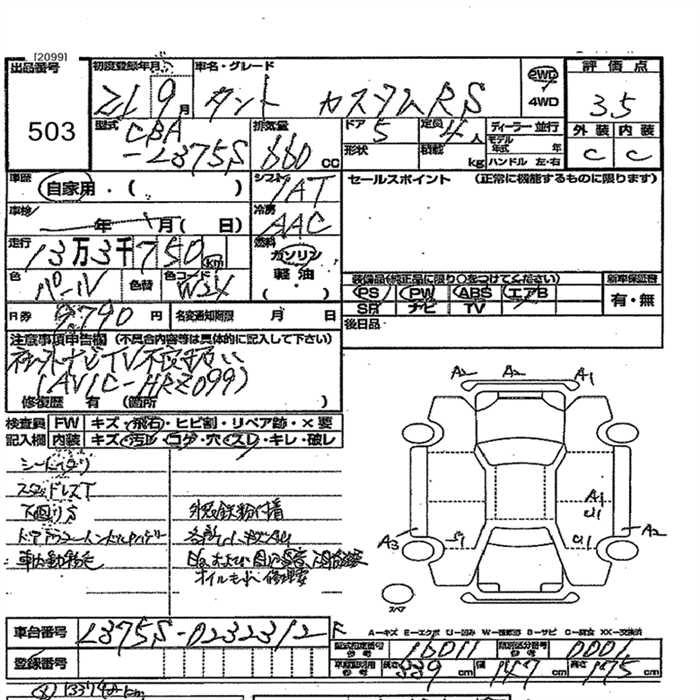 [2099]
出品番号 初度登録年月 車名・グレード 2WD 評価点
503 21 9月 タント カスタムRS 4WD 3.5
型式 CBA-L375S 排気量 660cc ドア 5 定員 4人 ディーラー 並行 外装 内装
形状 積載 kg モデル年式 年 ハンドル 左・右 C C
車歴 自家用・( ) シフト IAT セールスポイント (正常に機能するものに限ります)
車検 年 月(日) 冷房 AAC
走行 13万3千750km 燃料 ガソリン
色 パール 色替 色コード W24 軽油 ・( )
装備品(純正品に限り○をつけてください) 新車保証書
PS PW ABS エアB 有・無
SR ナビ TV
R券 9790円 名変通知期限 月 日 後日品
注意事項申告欄 (不具合内容等は具体的に記入して下さい)
社外ナビTV不良扱い
(AVIC-HRZ099)
修復歴 有 (箇所 )
検査員 FW キズ・飛石・ヒビ割・リペア跡・×要
記入欄 内装 キズ・汚レ・コゲ・穴・スレ・キレ・破レ
A2 A2 A1
スタッドレスT
下廻りS
外装鉄粉付着
車内動物毛
オイルもれ 修理要
A1
U1
A3 U1 A2
スペア
車台番号 L375S-0232312
A-キズ E-エクボ U-凹み W-補修跡 S-サビ C-腐食 XX-交換済
登録番号
型式指定番号 参考 16011 類別区分番号 参考 0001
長さ 339cm 幅 147 高さ 175cm